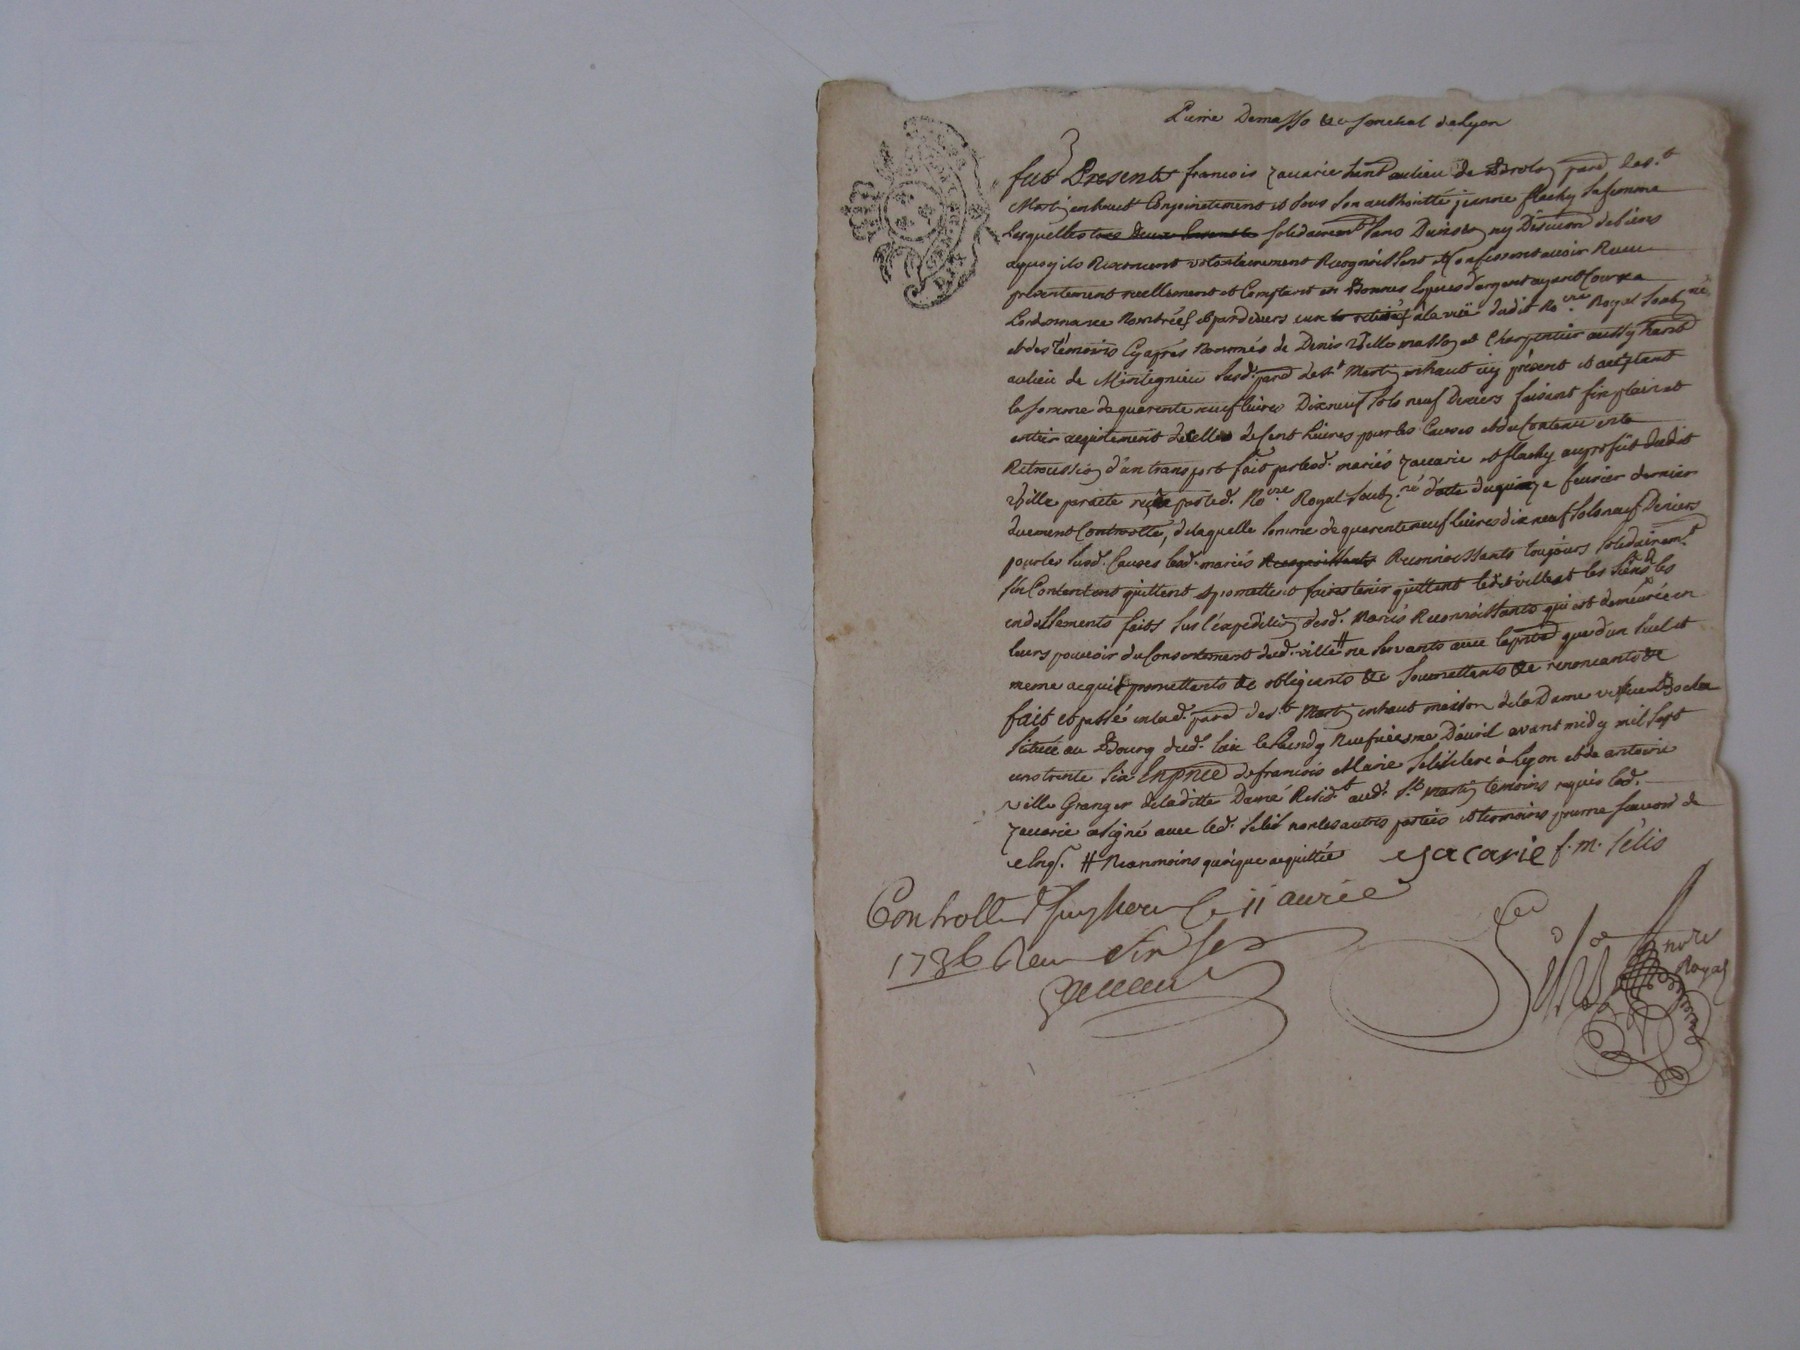 Pierre Demasso &c seneschal de Lyon
fut Presents francois zacarie habt au lieu de parr de st
Martin enhaut Conjoinctement et sous son authoritté jeanne flachy sa femme
Lesquelles solidairemt sans Division ny Discution de biens
a quoy ils Renoncent volontairement Recognoissent et Confessent avoir Receu
présentement reellement et Comptant en Bonnes Espèces d'argent ayant Cours a
Lordonnance Nombrées et pardevers eux à la vüe dudit Nore Royal soubné
et des Témoins Cy après Nommés de Denis Ville masson et Charpentier aussy habt
au lieu de susd. parr de st Martin enhaut icy présent et acceptant
la somme de quarente neuf livres Dixneuf sols neuf Deniers faisant fin plain et
entier acquitement de celle de Cent livres pour les Causes et du Contenu en la
Retroussion d'un transport fait par lesd. mariés zacarie et flachy au profit dudit
Ville par acte reçu par led. Nore Royal soubné datte du quinze fevrier dernier
duement Controllé, de laquelle somme de quarente neuf livres dixneuf sols neuf Deniers
pour les susd. Causes lesd. mariés Reconnoissants toujours solidairemt
s'en Contentent quittent et promettent faire tenir quittent ledit Ville et les siens les
endossements faits sur l'expedition desd. mariés Reconnoissants qui est demeurée en
leurs pouvoir du Consentement dud. ville # ne servants avec le prnt que d'un seul et
meme acquit promettants &c obligeants &c soumettants &c renoncants &c
fait et passé en lad. parr de st Martin enhaut maison de la Dame
située au Bourg dud. lieu le Lundy Neufviesme D'avril avant midy mil sept
cens trente six En pnce de francois Marie Selis clerc à Lyon et de antoine
ville Granger de la ditte Dame Residt aud. st Martin temoins requis led.
zacarie a signé avec led. Selis non les autres parties et temoins pour ne scavoir de
# Neanmoins quoique acquittée zacarie f. m. Selis
Controllé le 11 avril
1736 Receu six sols
nore
Royal